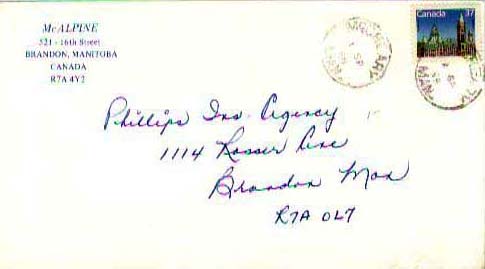 McALPINE
521 - 16th Street
BRANDON, MANITOBA
CANADA
R7A 4Y2
Canada 37
Phillips Ins. Agency
1114 Rosser Ave
Brandon Man
R7A 0L7